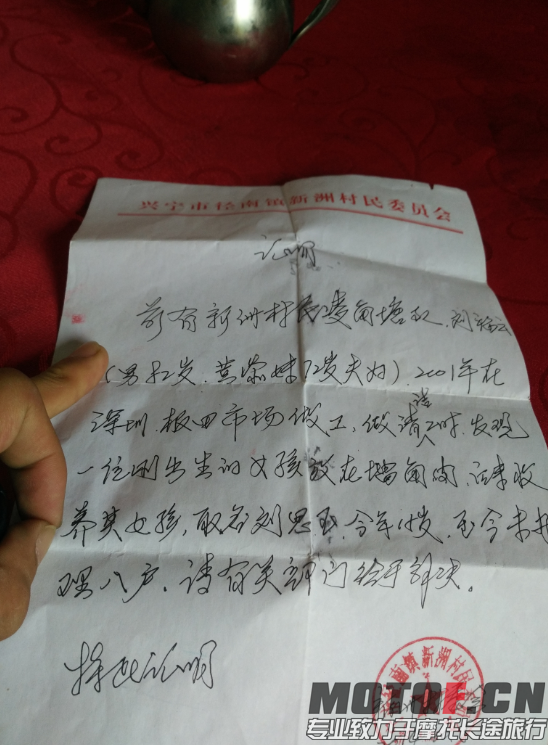 兴宁市径南镇新洲村民委员会
证明
兹有新洲村民菱角塘
(男82岁.黄 妹72岁夫妇).2001年在
深圳.板田市场做工,做清洁工时.发现
一位刚出生的女孩放在墙角内.
收
养其女孩,取名刘思 ,今年 岁,至今未
理入户.请有关部门给予解决。
特此证明
南镇新洲村民
MOTO8.CN
专业致力于摩托长途旅行